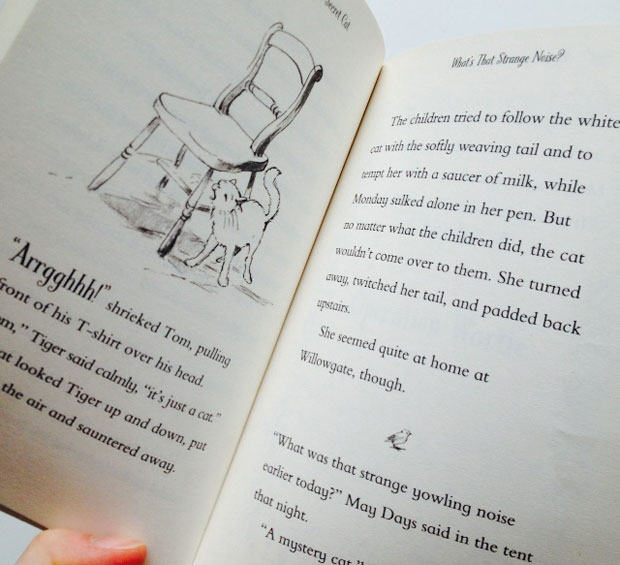 Secret Cat
"Arrgghhh!" shrieked Tom, pulling
front of his T-shirt over his head.
" Tiger said calmly, "it's just a cat."
looked Tiger up and down, put
the air and sauntered away.
What's That Strange Noise?
The children tried to follow the white
cat with the softly weaving tail and to
tempt her with a saucer of milk, while
Monday sulked alone in her pen. But
no matter what the children did, the cat
wouldn't come over to them. She turned
away, twitched her tail, and padded back
upstairs.
She seemed quite at home at
Willowgate, though.
"What was that strange yowling noise
earlier today?" May Days said in the tent
that night.
"A mystery cat,"